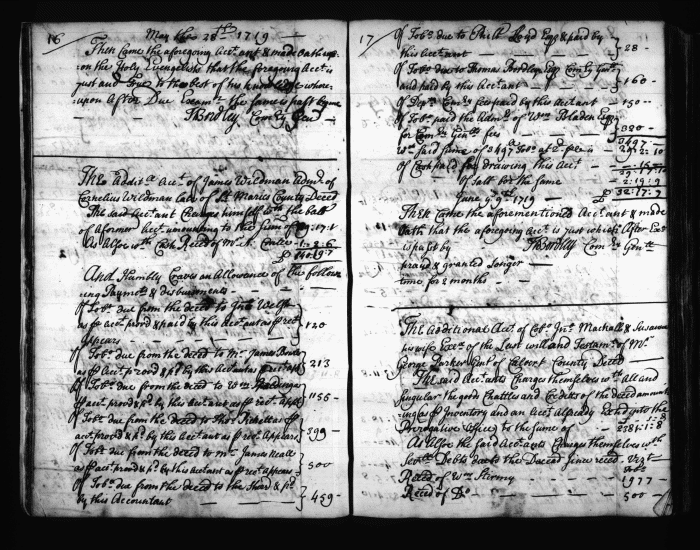 16
May the 28th 1719
Then Came the aforegoing Acct. ant & made Oath
on the Holy Evangelists that the foregoing Acct. is
just and true to the best of his knowledge where
upon After Due Exam. the same is past by me
TBordley Com:ry Genl.
The Addit.a Acct. of James Wildman Admr. of
Cornelius Wildman late of St. Maries County Deced
The said Acct.ant Charges himself with the ball
of aformer Acct. amounting to the Sume of
As Allso with Cash Reced of Mr. 1:2:6
140:19:7
And Humbly Craves an Allowance of the follow
ing Paymts. & disbursements
Of Tobo. due from the deced to
as pr Acct. prov'd & paid by this Acct.ant as pr rect 120
Appears
Of Tobo. due from the deced to Mr. James
as pr Acct. prov'd & pd. by this Acct.ant as pr rect. app. 213
Of Tobo. due from the deced to Wm.
pr acct. prov'd & pd. by this Acct.ant as pr rect. app. 1156
Of Tobo. due from the deced to Thos.
acct. prov'd & pd. by this Acct.ant as pr rect. Appears 399
Of Tobo. due from the deced to Mr. James Neall
as pr acct. prov'd & pd. by this Acct.ant as pr rect. appears 500
Of Tobo. due from the deced to the & pd.
by this Accountant 459
17
Of Tobo. due to Phill Loyd Esq. & paid by
this Acct.ant 28
Of Tobo. due to Thomas Bordley Esq. Com:ry Genl.
and paid by this Acct.ant 160
Of Depty. Com:ry fees paid by this Acct.ant 150
Of Tobo. paid the Admr. of Wm. Bladen Esq.
for Com:ry Genlls. fees 320
3497
Which said sume of 3497 Tobo. at 2d. pr is 29:2:10
Of Cash paid for drawing this Acct.
Of Sall. for the same 2:19:9
32:17:7
June 9th 1719
Then Came the aforementioned Acct.ant & made
Oath that the aforegoing Acct. is just which After Exam.
is past by TBordley Com:ry Genll.
prayd & granted longer
time for 2 months
The Additional Acct. of Coll. Jno. Mackall & Susanna
his wife Exrs. of the Last will and Testamt. of Mr.
George Parker Gent of Calvert County Deced
The said Acct.ants Charges themselves with All and
Singular the good Chattles and Creditts of the deced amount
ing as pr Inventory and an Acct. Already Exhd. into the
Prerogative office to the Sume of 2381:1:8
As Allso the said Acct.ants Charges themselves with
Severll. Debts due to the Deceased Since reced Vizt
Tobo.
Reced of Wm. 1977
Reced of Do. 500